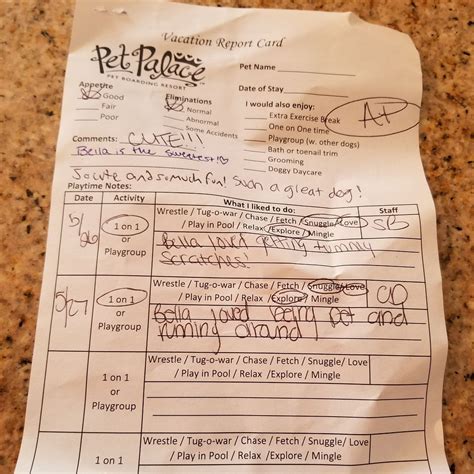 Vacation Report Card
Pet Palace
PET BOARDING RESORT
Pet Name
Date of Stay
Appetite
Good
Fair
Poor
Eliminations
Normal
Abnormal
Some Accidents
I would also enjoy:
Extra Exercise Break
One on One time
Playgroup (w. other dogs)
Bath or toenail trim
Grooming
Doggy Daycare
A+
Comments: CUTE!!!
Bella is the sweetest!♡
So cute and so much fun! Such a great dog!
Playtime Notes:
Date Activity What I liked to do: Staff
5/26
1 on 1
or
Playgroup
Wrestle / Tug-o-war / Chase / Fetch / Snuggle/Love
/ Play in Pool / Relax /Explore / Mingle
SB
Bella loved getting tummy
scratches!
5/27
1 on 1
or
Playgroup
Wrestle / Tug-o-war / Chase / Fetch / Snuggle/Love
/ Play in Pool / Relax /Explore / Mingle
Bella loved being pet and
running around
1 on 1
or
Playgroup
Wrestle / Tug-o-war / Chase / Fetch / Snuggle/Love
/ Play in Pool / Relax /Explore / Mingle
1 on 1
or
Wrestle / Tug-o-war / Chase / Fetch / Snuggle/Love
/ Play in Pool / Relax /Explore / Mingle